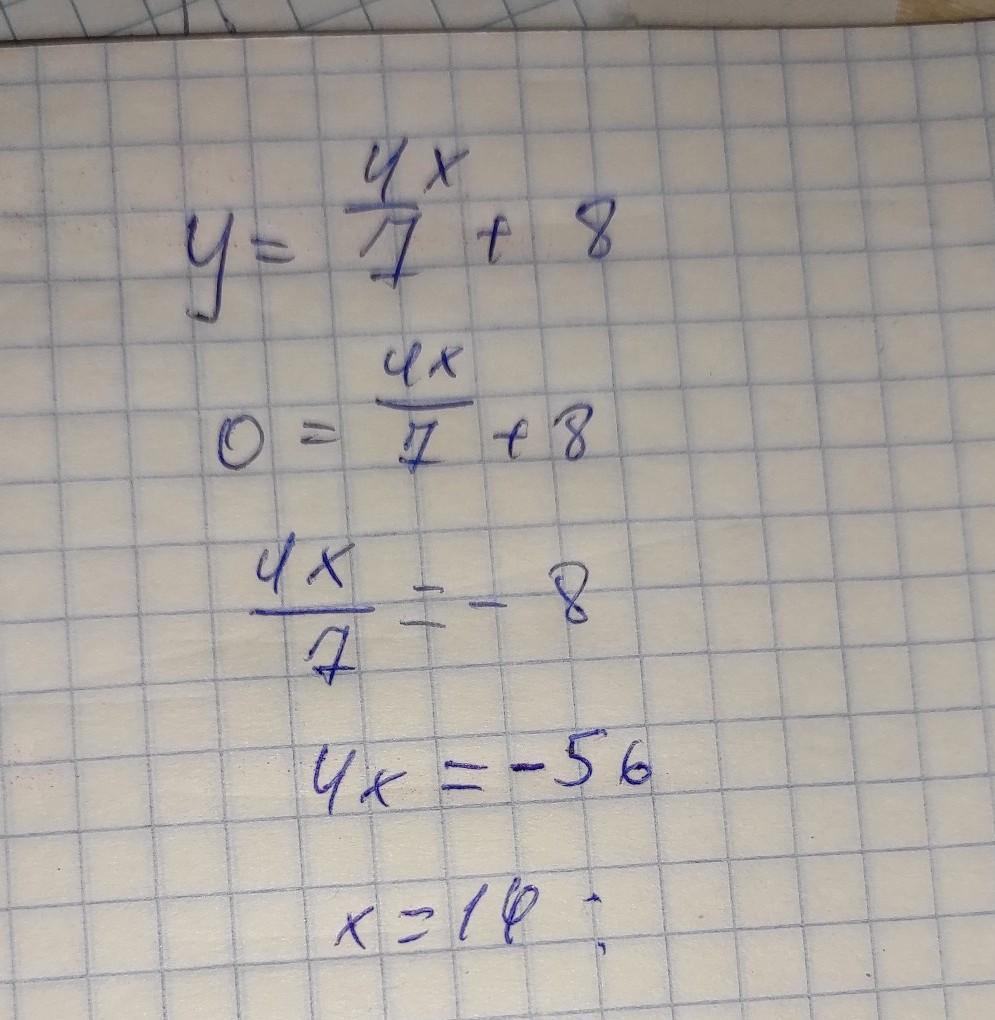 y = 4x/7 + 8
0 = 4x/7 + 8
4x/7 = - 8
4x = -56
x = 14 ;